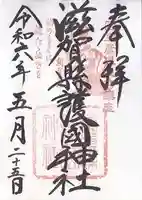 奉拝
滋賀縣護國神社
令和六年五月二十五日